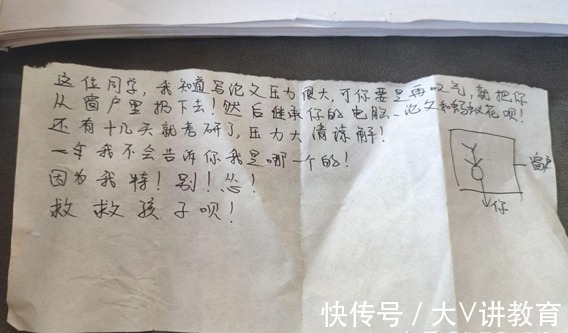 这位同学，我知道写论文压力很大，可你要是再叹气，就把你
从窗户里扔下去！然后继承你的电脑、论文和蚂蚁花呗！
还有十几天就考研了，压力大请谅解！
一年我不会告诉你我是哪一个的！
因为我特！别！怂！
救救孩子呗！
窗户
你
快传号/大V讲教育